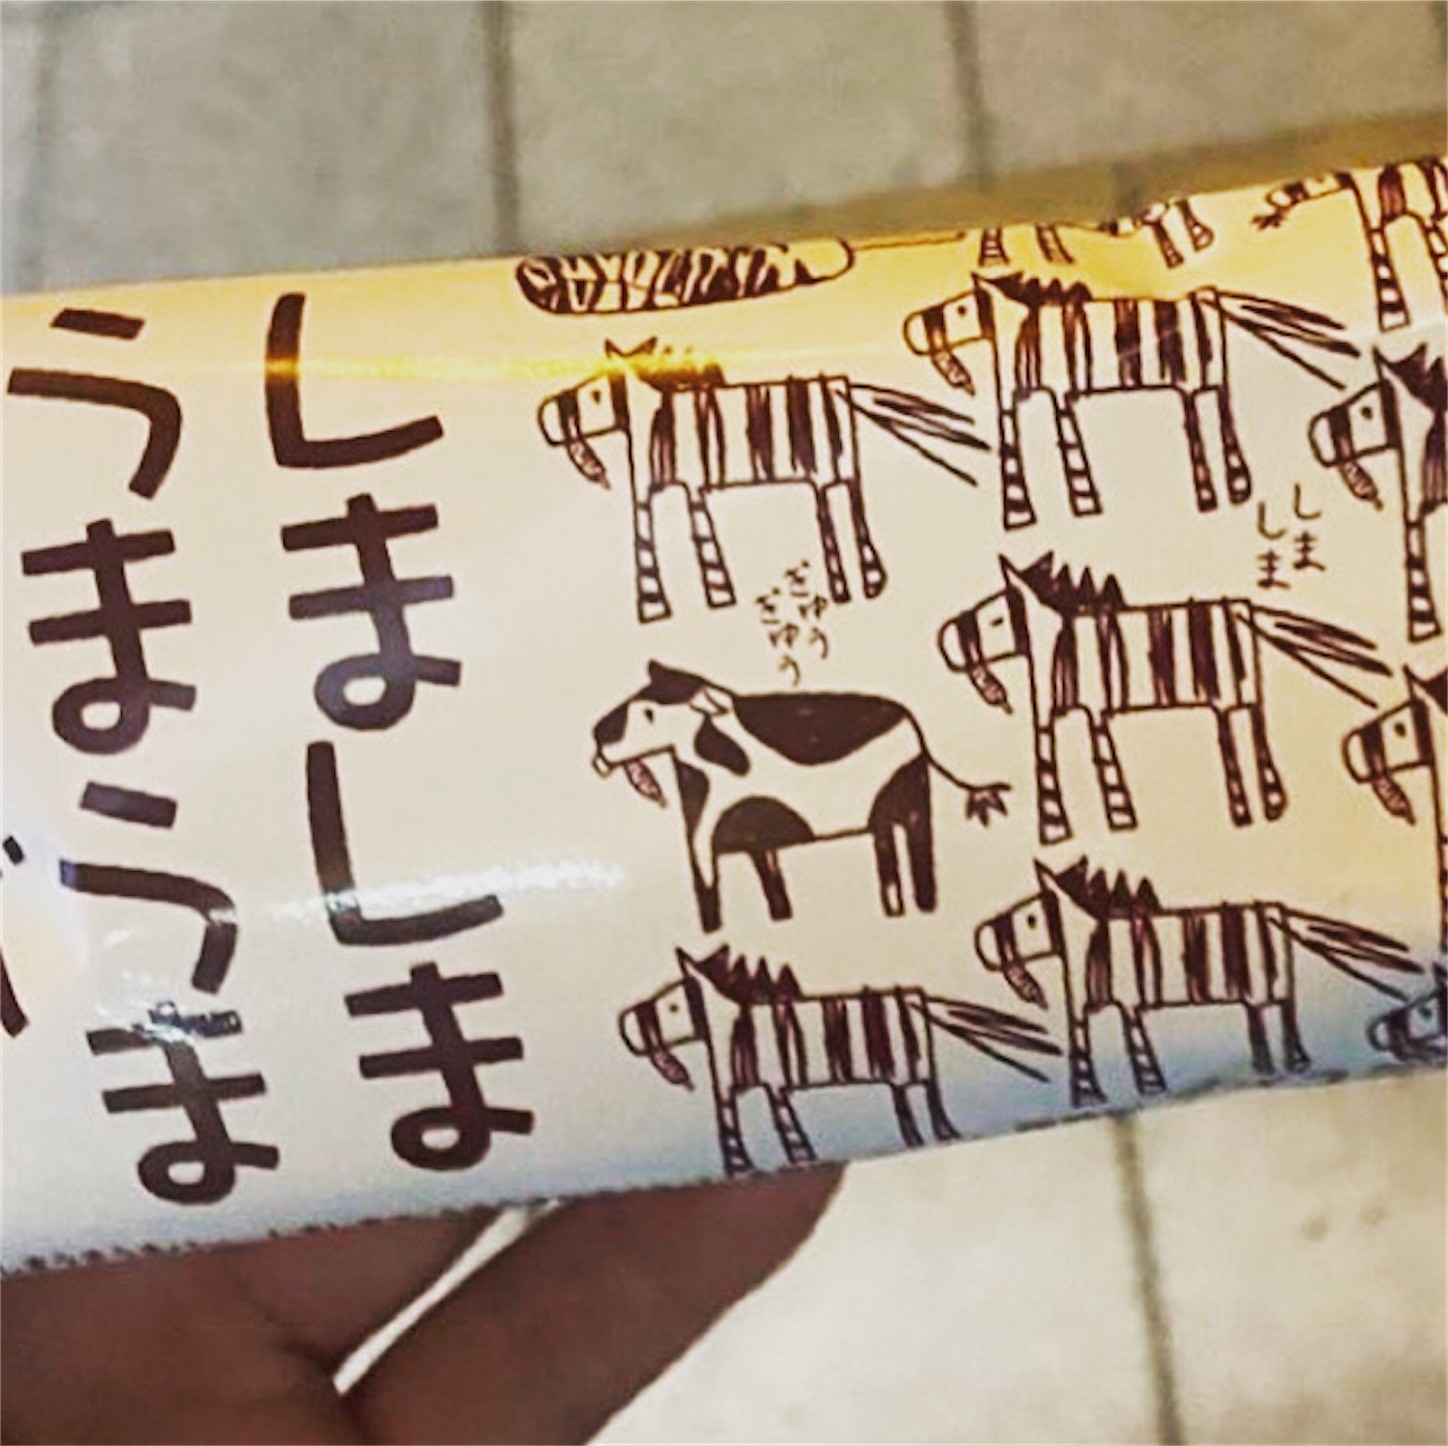 しましま
うまうま
しま
しま
ぎゅう
ぎゅう